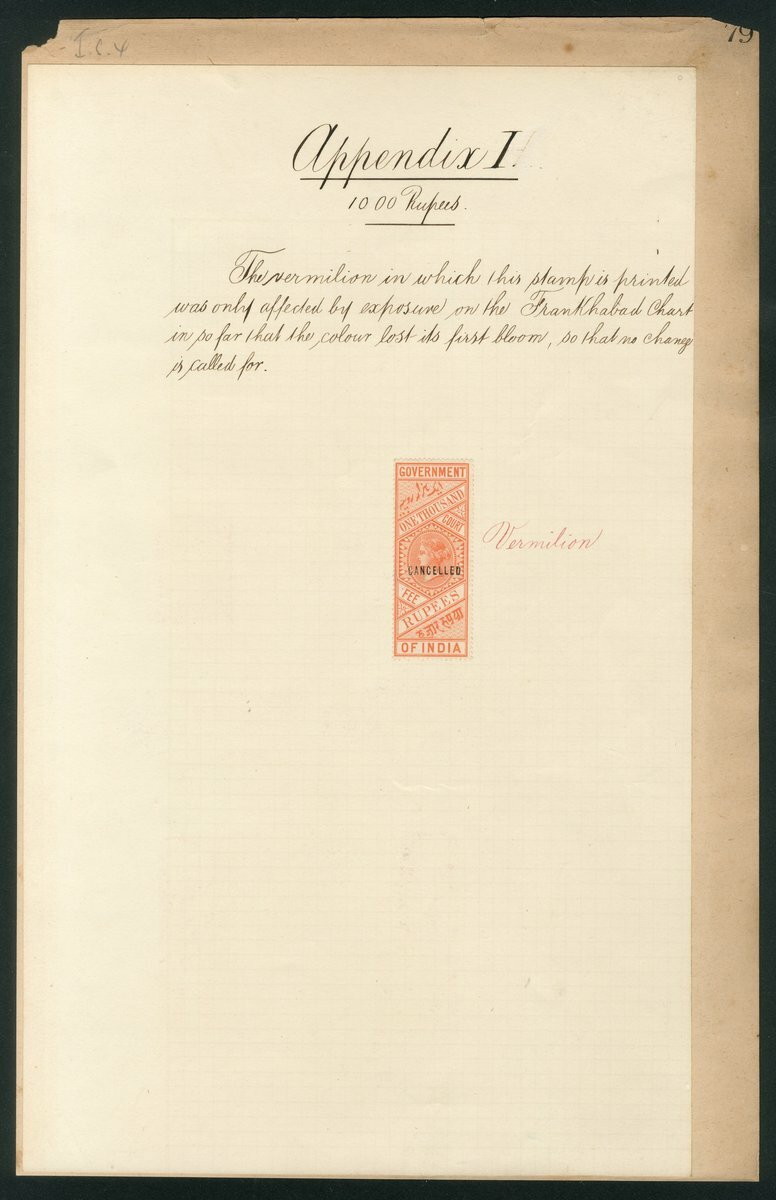 I.C.4
79
Appendix I.
1000 Rupees.
The vermilion in which this stamp is printed
was only affected by exposure on the Frankhabad Chart
in so far that the colour lost its first bloom, so that no change
is called for.
GOVERNMENT
ایک ہزار روپیہ
ONE THOUSAND
COURT
CANCELLED
FEE
RUPEES
OF INDIA
Vermilion